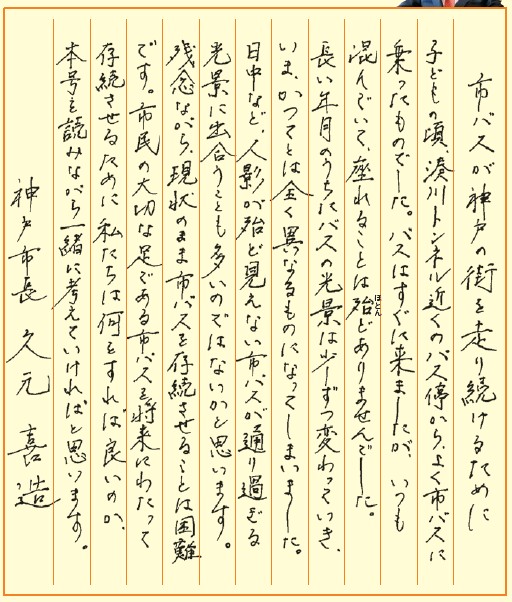 市バスが神戸の街を走り続けるために
子どもの頃、湊川トンネル近くのバス停から、よく市バスに
乗ったものでした。バスはすぐに来ましたが、いつも
混んでいて、座れることは殆どありませんでした。
ほとん
長い年月のうちにバスの光景は少しずつ変わっていき、
いま、かつてとは全く異なるものになってしまいました。
日中など、人影が殆ど見えない市バスが通り過ぎる
光景に出合うことも多いのではないかと思います。
残念ながら、現状のまま市バスを存続させることは困難
です。市民の大切な足である市バスを将来にわたって
存続させるために私たちは何をすれば良いのか、
本号を読みながら一緒に考えていければと思います。
神戸市長 久元 喜造